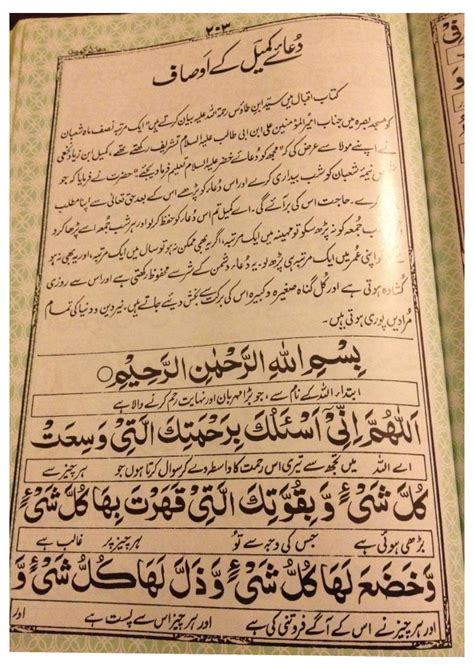 ۲۰۳
دُعائے کمیل کے اوصاف
کتاب اقبال میں سیّد ابن طاؤس رحمۃ اللہ علیہ بیان کرتے ہیں "ایک مرتبہ نصف ماہ شعبان
کو مسجد بصرہ میں جناب امیر المؤمنین علی ابن ابی طالب علیہ السلام تشریف رکھتے تھے، کمیل بن زیاد نخعی
نے اپنے مولا سے عرض کی کہ "مجھ کو دُعائے خضر علیہ السلام تعلیم فرما دیجئے" حضرت نے فرمایا کہ جو
شخص نیمۂ شعبان کو شب بیداری کرے اور اس دُعا کو پڑھے اس کے بعد حق تعالیٰ سے اپنا مطلب
چاہے۔ حاجت اس کی برآئے گی۔ اے کمیل تم اس دُعا کو حفظ کر لو اور ہر شب جمعہ اسے پڑھا کر
شب جمعہ کو نہ پڑھ سکو تو مہینہ میں ایک مرتبہ، اگر یہ بھی ممکن نہ ہو تو سال میں ایک مرتبہ، اور یہ بھی نہ ہو
تو اپنی عمر میں ایک مرتبہ ہی پڑھ لو۔ یہ دُعا دشمن کے شر سے محفوظ رکھتی ہے اور اس سے روزی
کشادہ ہوتی ہے اور کُل گناہ صغیرہ و کبیرہ اس کی برکت سے بخش دیئے جاتے ہیں، نیز دین و دنیا کی تمام
مُرادیں پوری ہوتی ہیں۔
بِسْمِ اللهِ الرَّحْمٰنِ الرَّحِيْمِ ○
ابتداء اللہ کے نام سے، جو بڑا مہربان اور نہایت رحم کرنے والا ہے
اَللّٰهُمَّ اِنِّىْ اَسْئَلُكَ بِرَحْمَتِكَ الَّتِىْ وَسِعَتْ
اے اللہ میں تجھ سے تیری اس رحمت کا واسطہ دے کر سوال کرتا ہوں جو ہر چیز سے
كُلَّ شَىْءٍ وَّ بِقُوَّتِكَ الَّتِىْ قَهَرْتَ بِهَا كُلَّ شَىْءٍ
بڑھی ہوئی ہے جس کی وجہ سے تُو ہر چیز پر غالب ہے
وَّخَضَعَ لَهَا كُلُّ شَىْءٍ وَّ ذَلَّ لَهَا كُلُّ شَىْءٍ وَّ
اور ہر چیز نے اس کے آگے فروتنی کی ہے اور ہر چیز اس سے پست ہے اور